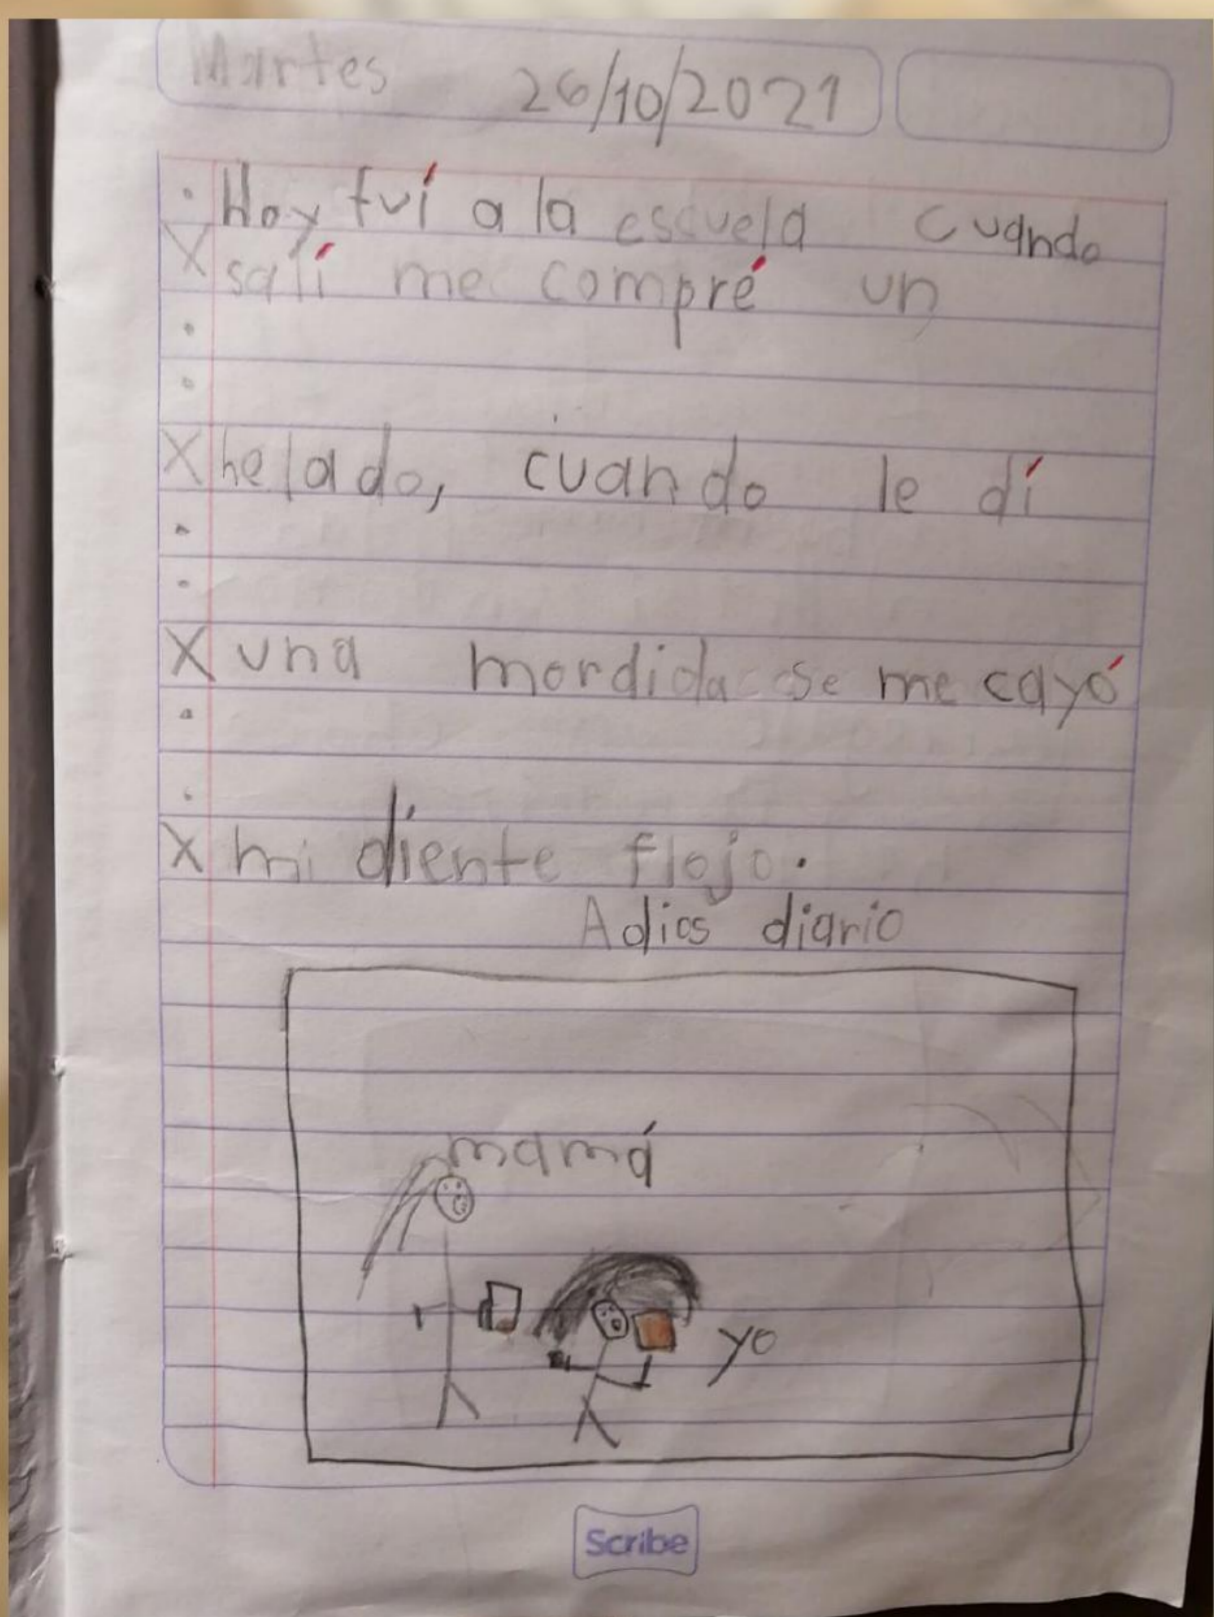 Martes 26/10/2021
. Hoy fuí a la escuela cuando
X salí me compré un
X helado, cuando le dí
X una mordida se me cayó
X mi diente flojo.
Adios diario
mamá
yo
Scribe